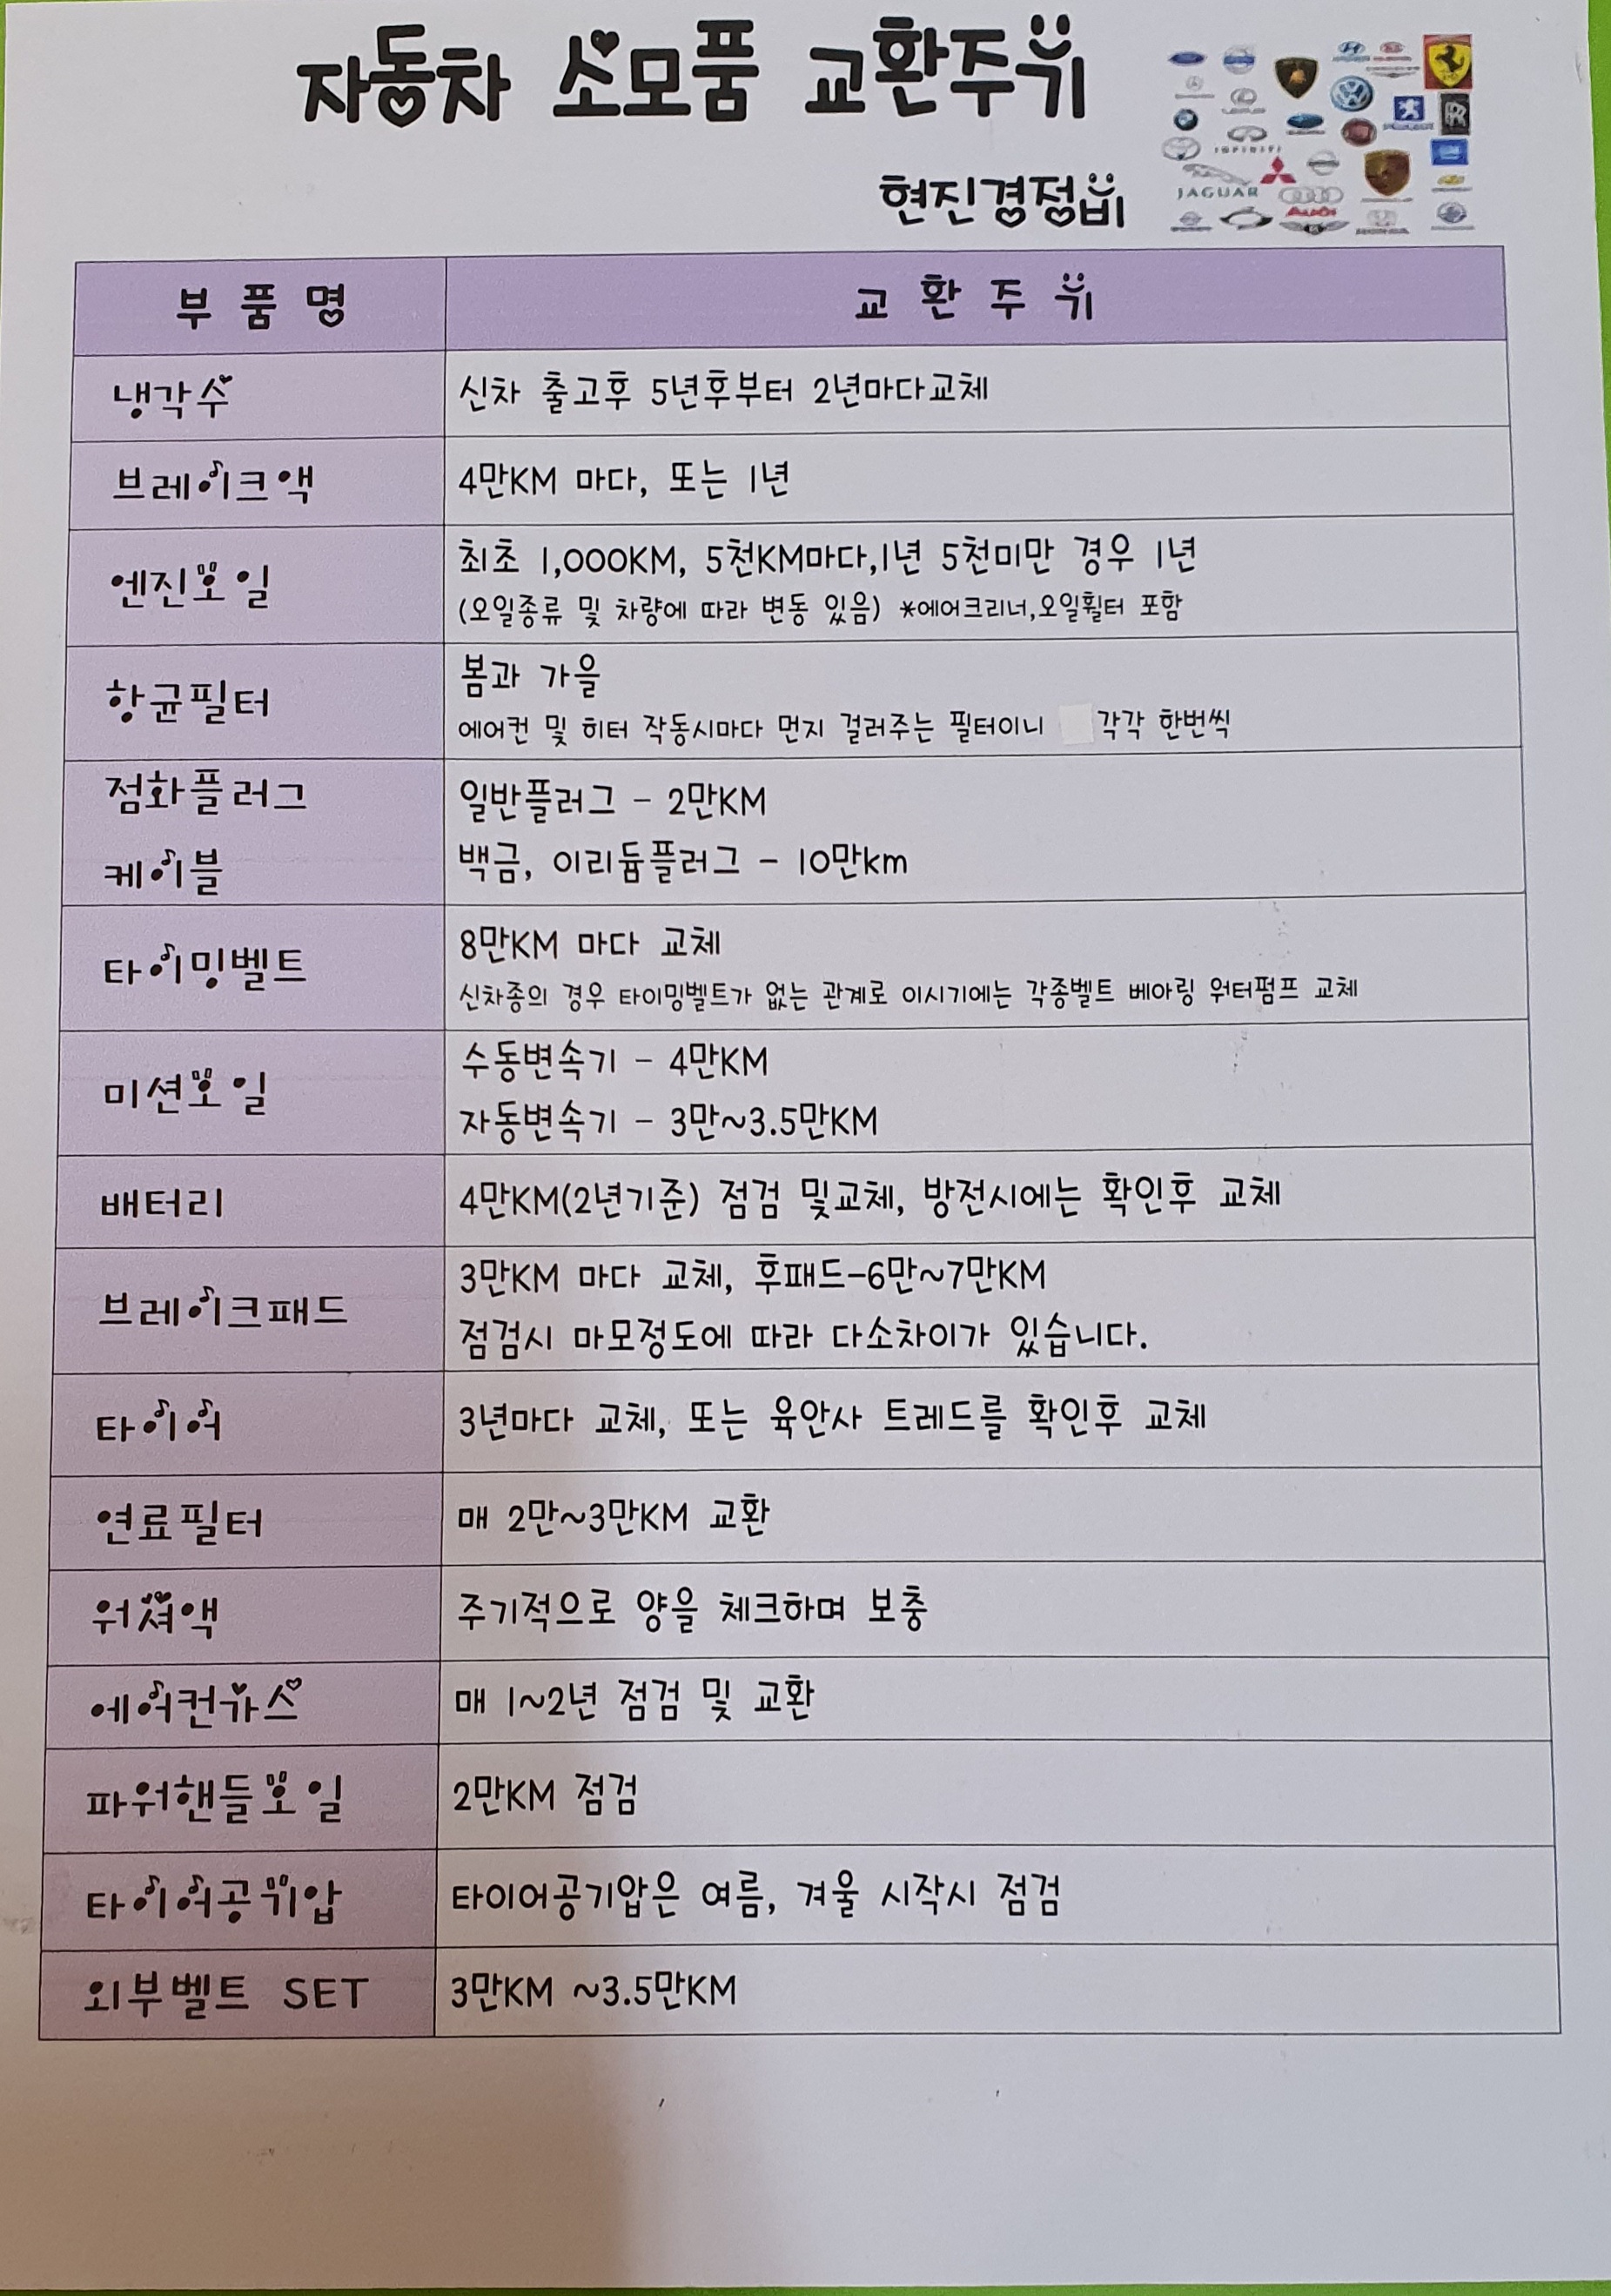 자동차 소모품 교환주기
현진경정비
JAGUAR
INFINITI
Audi
부 품 명
교 환 주 기
냉각수
신차 출고후 5년후부터 2년마다교체
브레이크액
4만KM 마다, 또는 1년
엔진오일
최초 1,000KM, 5천KM마다,1년 5천미만 경우 1년
(오일종류 및 차량에 따라 변동 있음) *에어크리너,오일휠터 포함
항균필터
봄과 가을
에어컨 및 히터 작동시마다 먼지 걸러주는 필터이니 각각 한번씩
점화플러그
케이블
일반플러그 - 2만KM
백금, 이리듐플러그 - 10만km
타이밍벨트
8만KM 마다 교체
신차종의 경우 타이밍벨트가 없는 관계로 이시기에는 각종벨트 베아링 워터펌프 교체
미션오일
수동변속기 - 4만KM
자동변속기 - 3만~3.5만KM
배터리
4만KM(2년기준) 점검 및교체, 방전시에는 확인후 교체
브레이크패드
3만KM 마다 교체, 후패드-6만~7만KM
점검시 마모정도에 따라 다소차이가 있습니다.
타이어
3년마다 교체, 또는 육안사 트레드를 확인후 교체
연료필터
매 2만~3만KM 교환
워셔액
주기적으로 양을 체크하며 보충
에어컨가스
매 1~2년 점검 및 교환
파워핸들오일
2만KM 점검
타이어공기압
타이어공기압은 여름, 겨울 시작시 점검
외부벨트 SET
3만KM ~3.5만KM